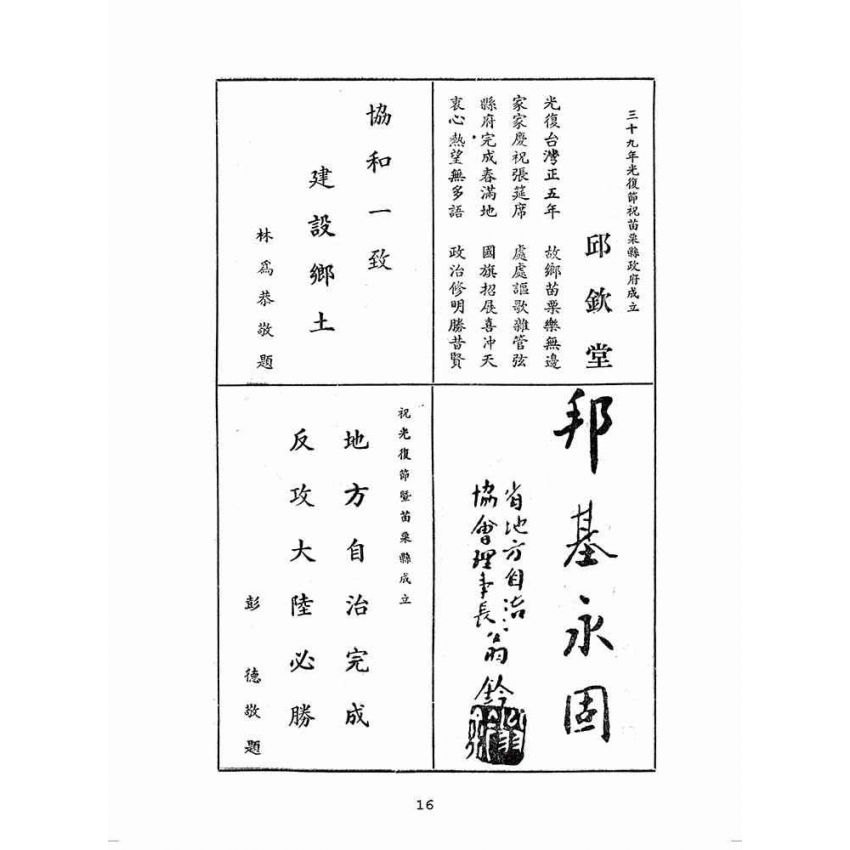 三十九年光復節祝苗栗縣政府成立
邱欽堂
光復台灣正五年 故鄉苗栗樂無邊
家家慶祝張筵席 處處謳歌雜管弦
縣府完成春滿地 國旗招展喜冲天
衷心熱望無多語 政治修明勝昔賢
協和一致
建設鄉土
林為恭敬題
邦基永固
省地方自治
協會理事長翁鈐
祝光復節暨苗栗縣成立
地方自治完成
反攻大陸必勝
彭德敬題
16